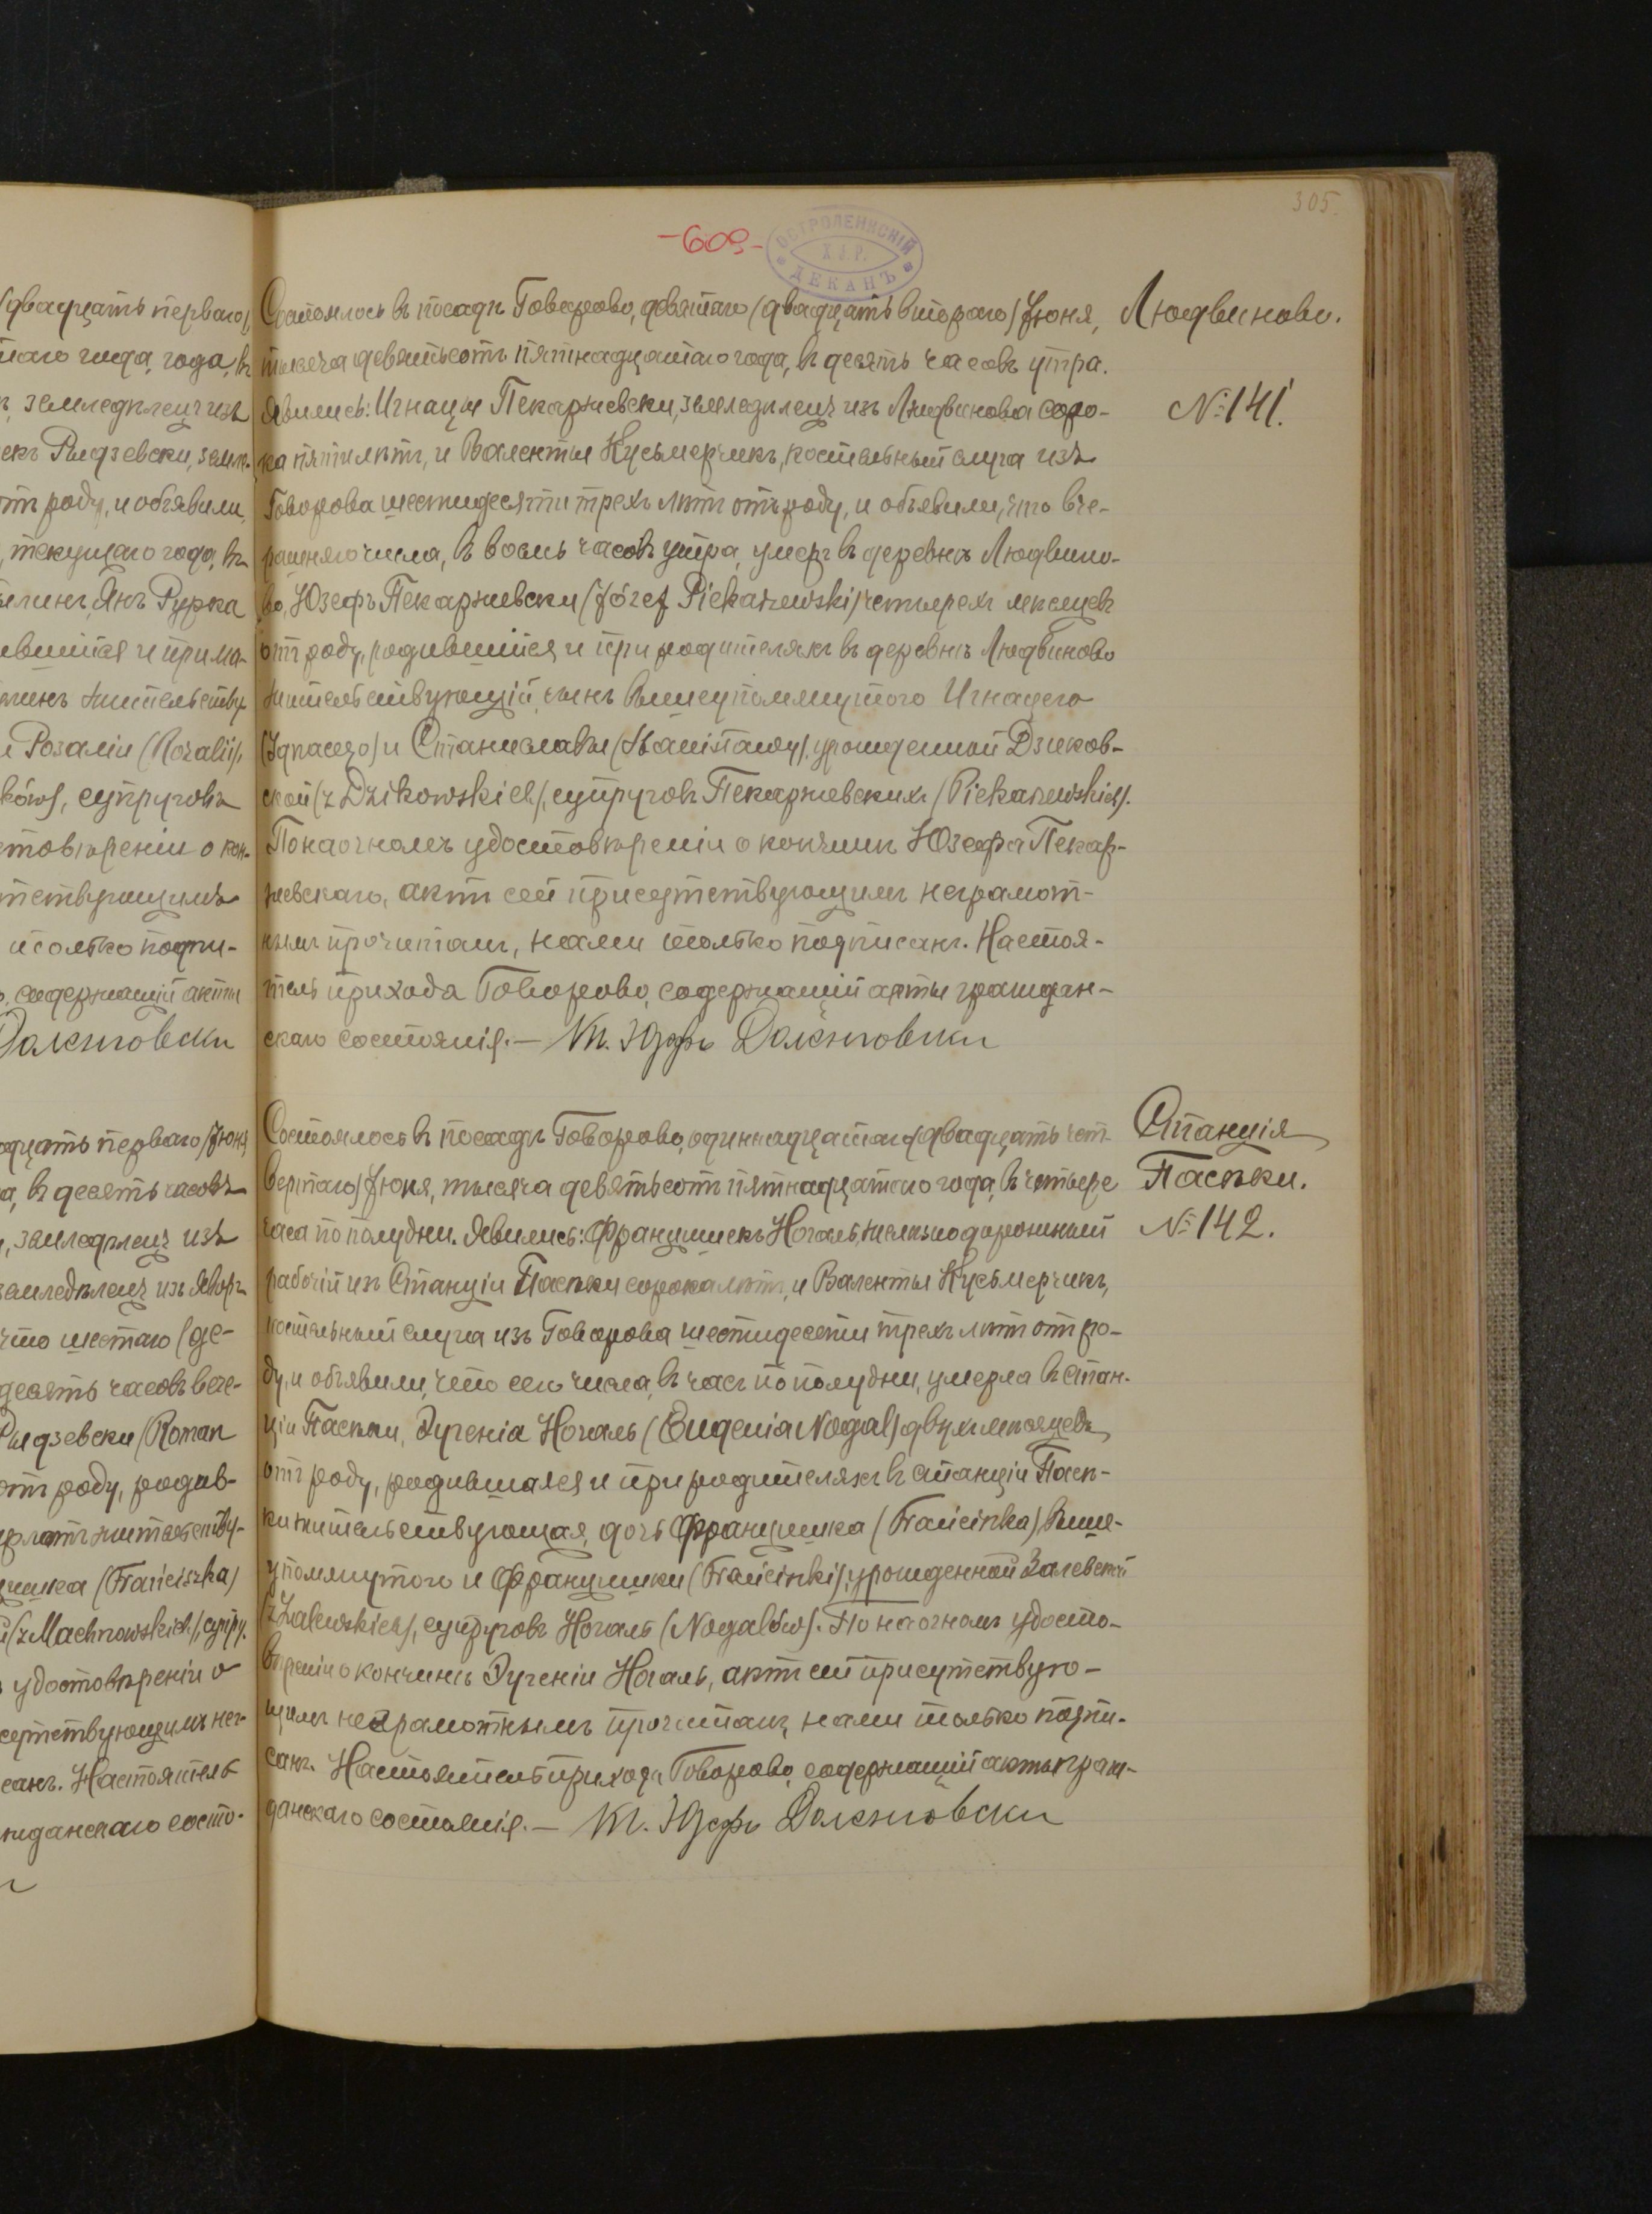 305.
-609-
ОСТРОЛЕНКСКІЙ
ДЕКАНЪ
(двадцать перваго)
года, въ
земледѣлецъ изъ
Рыдзевски, земле-
роду, и объявили,
текущаго года, въ
Янъ Рурка
и при ма-
жительству-
и Розаліи (Rozalii),
супруговъ
о кон-
только подпи-
содержащій акты
Залензовски
двадцать перваго) Іюня
въ десять часовъ
земледѣлецъ изъ
земледѣлецъ изъ
что шестаго (де-
десять часовъ вече-
Рыдзевски (Roman
отъ роду, родив-
жительству-
(Franciszka)
(z Machnowskich), супру-
удостовѣреніи о
санъ. Настоятель
жданскаго состо-
Людвиново.
№ 141.
Состоялось въ посадѣ Говорово, девятаго (двадцать втораго) Іюня,
тысяча девятьсотъ пятнадцатаго года, въ десять часовъ утра.
Явились: Игнацы Пекаржевски, земледѣлецъ изъ Людвинова соро-
ка пяти лѣтъ, и Валенты Кусьмерчикъ, костельный слуга изъ
Говорова шестидесяти трехъ лѣтъ отъ роду, и объявили, что вче-
рашняго числа, въ восемь часовъ утра, умеръ въ деревнѣ Людвино-
во, Юзефъ Пекаржевски (Józef Piekarzewski) четырехъ мѣсяцевъ
отъ роду, родившійся и при родителяхъ въ деревнѣ Людвиново
жительствующій, сынъ вышеупомянутого Игнацего
(Ignacego) и Станиславы (Stanisławy), урожденной Дзиков-
ской (z Dzikowskich), супруговъ Пекаржевскихъ (Piekarzewskich).
По наочномъ удостовѣреніи о кончинѣ Юзефа Пекар-
жевскаго, актъ сей присутствующимъ неграмот-
нымъ прочитанъ, нами только подписанъ. Настоя-
тель прихода Говорово, содержащій акты граждан-
скаго состоянія.— Кс. Юзефъ
Станція
Пасѣки.
№ 142.
Состоялось въ посадѣ Говорово, одиннадцатаго (двадцать чет-
вертаго) Іюня, тысяча девятьсотъ пятнадцатаго года, въ четыре
часа по полудни. Явились: Францишекъ Ногаль, желѣзнодорожный
рабочій изъ Станціи Пасѣки сорока лѣтъ, и Валенты Кусьмерчикъ,
костельный слуга изъ Говорова шестидесяти трехъ лѣтъ отъ ро-
ду, и объявили, что сего числа, въ часъ по полудни, умерла въ Стан-
ціи Пасѣки, Эугеніа Ногаль (Eugenia Nogal) двухъ мѣсяцевъ
отъ роду, родившаяся и при родителяхъ въ станціи Пасѣ-
ки жительствующая, дочь Францишка (Franciszka) выше-
упомянутого и Францишки (Franciszki), урожденной Залевской
(z Zalewskich), супруговъ Ногаль (Nogalów). По наочномъ удосто-
вѣреніи о кончинѣ Эугеніи Ногаль, актъ сей присутствую-
щимъ неграмотнымъ прочитанъ, нами только подпи-
санъ. Настоятель прихода Говорово, содержащій акты граж-
данскаго состоянія.— Кс. Юзефъ